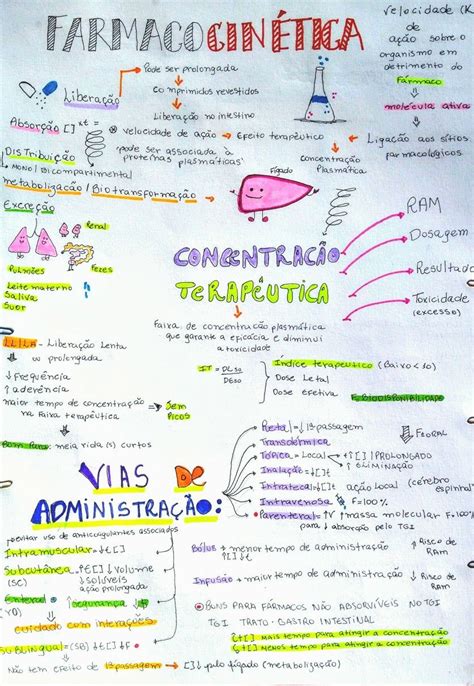 FARMACOCINÉTICA
Velocidade (K
de
ação sobre o
organismo em
detrimento do
Fármaco
molécula ativa
Ligação aos sítios
farmacológicos
Liberação
Pode ser prolongada
comprimidos revestidos
Liberação no intestino
Absorção [ ]
velocidade de ação → Efeito terapêutico
Concentração
Plasmática
Distribuição
pode ser associada à
proteínas plasmáticas
mono / Bicompartimental
Metabolização / Biotransformação
Fígado
Excreção
Renal
Pulmões
Fezes
Leite materno
Saliva
Suor
CONCENTRAÇÃO
TERAPÊUTICA
RAM
Dosagem
Resultado
Toxicidade
(excesso)
Faixa de concentração plasmática
que garante a eficácia e diminui
a toxicidade
- Liberação Lenta
prolongada
↓ Frequência
↑ aderência
maior tempo de concentração
na Faixa terapêutica
Sem
Picos
meia vida (s) curtos
IT = DL50
DE50
Índice terapêutico (Baixo < 10)
Dose Letal
Dose efetiva
BIODISPONIBILIDADE
VIAS DE
ADMINISTRAÇÃO:
Retal = ↓ 1ª passagem
Transdérmica
Tópica = Local
↑[ ] PROLONGADO
↑ ELIMINAÇÃO
Inalação
Intratecal
ação local (cérebro
espinhal)
Intravenosa F=100%
Parenteral ↑ massa molecular F=100%
para ↓ absorção pelo TGI
evitar uso de anticoagulantes associados
Intramuscular
Subcutânea
(SC)
↓ volume
↓ solúveis
ação prolongada
Enteral
↑ segurança
cuidado com interações
Sublingual = (SB)
Não tem efeito de 1ª passagem → [ ]↓ pelo fígado (metabolização)
Bôlus → menor tempo de administração
↑ Risco de
Ram
Infusão → maior tempo de administração
↓ Risco de
Ram
BONS PARA FÁRMACOS NÃO ABSORVÍVEIS NO TGI
TGI → TRATO GASTRO INTESTINAL
↑t[ ] Mais tempo para atingir a concentração
↓t[ ] Menos tempo para atingir a concentração